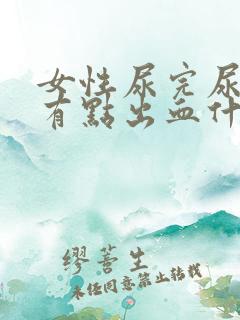 女性尿完尿
有點出血什
繆薈生
未经同意禁止转载